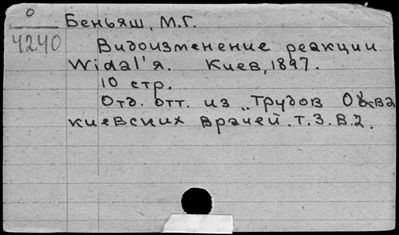 0
4240
Беньяш, М.Г.
Видоизменение реакции
Widal'я. Киев, 1897.
10 стр.
Отд. отт. из „Трудов Об-ва
киевских врачей. т.3. в.2.